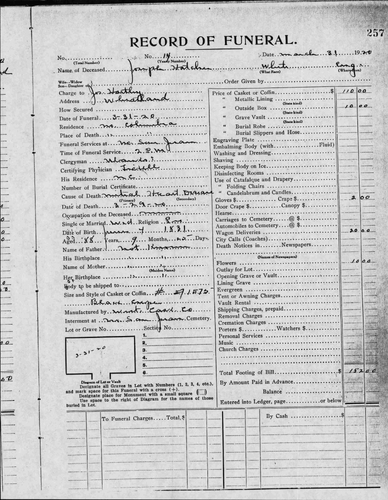 257
RECORD OF FUNERAL.
No. 14 Date March 31 1920
(Total Number) (Yearly Number)
Name of Deceased Joseph White
(What Race) (Where)
Wife—Widow
Son—Daughter of Order Given by
Charge to Jos.
Address Wheatland
How Secured
Date of Funeral 3-31-20
Residence Mt. Columbia
Place of Death
Funeral Services at
Time of Funeral Service 2 P.M.
Clergyman
Certifying Physician
His Residence
Number of Burial Certificate
Cause of Death Mitral Heart Disease
(Primary) (Secondary)
Date of Death 3-29-20
Occupation of the Deceased
Single or Married Wid. Religion
Date of Birth June 4 1831
Aged 88 Years 9 Months 25 Days
Name of Father Not Known
His Birthplace
Name of Mother
(Maiden Name)
Her Birthplace
Body to be shipped to
Size and Style of Casket or Coffin
Black Crepe
Manufactured by Mont. Cask. Co.
Interment at Cemetery
Lot or Grave No. Section No.
3-31-20
1.
2.
3.
4.
5.
6.
Diagram of Lot or Vault
Designate all Graves in Lot with Numbers (1, 2, 3, 4, etc.),
and mark space for this Funeral with a cross (+).
Designate place for Monument with a small square
Use space to the right of Diagram for the names of those
buried in Lot.
Price of Casket or Coffin $ 110 00
" Metallic Lining
(State kind)
" Outside Box 10 00
(State kind)
" Grave Vault
(State kind)
" Burial Robe
(State kind)
" Burial Slippers and Hose
Engraving Plate
Embalming Body (with Fluid)
Washing and Dressing
Shaving
Keeping Body on Ice
Disinfecting Rooms
Use of Catafalque and Drapery
" Folding Chairs
" Candelabrum and Candles
Gloves $ Crape $ 2 00
Door Crape $ Canopy $
Hearse
Carriages to Cemetery @ $
Automobiles to Cemetery @ $
Wagon Deliveries 20 00
City Calls (Coaches)
Death Notices in Newspapers
Flowers 10 00
Outlay for Lot
Opening Grave or Vault
Lining Grave
Evergreen
Tent or Awning Charges
Vault Rental
Shipping Charges, prepaid
Removal Charges
Cremation Charges
Porters $ Watchers $
Personal Services
Music
Church Charges
Total Footing of Bill $ 152 00
By Amount Paid in Advance
Balance
Entered into Ledger, page or below.
To Funeral Charges Total, $ By Cash $